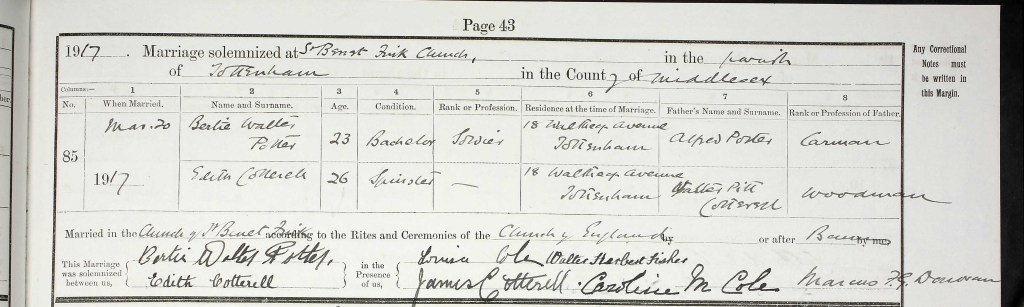 Page 43
1917. Marriage solemnized at St Benet Fink Church, in the parish
of Tottenham in the County of Middlesex
Columns:— 1 2 3 4 5 6 7 8
No. When Married. Name and Surname. Age. Condition. Rank or Profession. Residence at the time of Marriage. Father's Name and Surname. Rank or Profession of Father.
85 Mar. 20 Bertie Walter Potter 23 Bachelor Soldier 18 Avenue Tottenham Alfred Potter Carman
1917 Edith Cotterell 26 Spinster — 18 Avenue Tottenham Walter Pitt Cotterell Woodman
Married in the Church of St Benet Fink according to the Rites and Ceremonies of the Church of England by or after Banns by me,
This Marriage was solemnized between us, Bertie Walter Potter, Edith Cotterell in the Presence of us, Louisa Cole Walter Herbert Fisher James Cotterell. Caroline M Cole Marcus F. G. Donovan
Any Correctional
Notes must
be written in
this Margin.